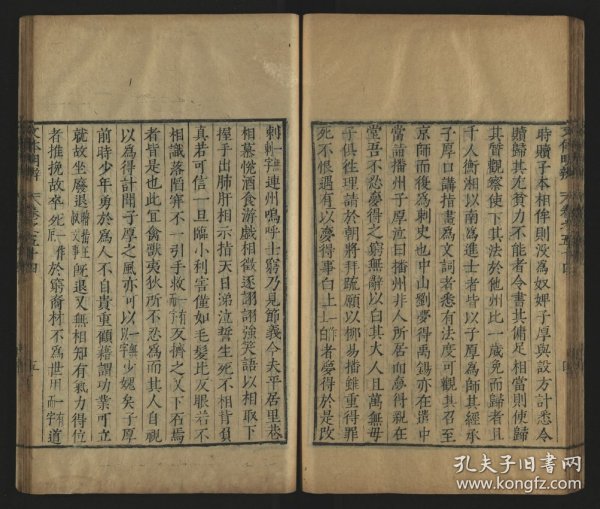 時贖子本相侔則没為奴婢子厚與設方計悉令
贖歸其尤貧力不能者令書其傭足相當則使歸
其質觀察使下其法於他州比一歲免而歸者且
千人衡湘以南為進士者皆以子厚為師其經承
子厚口講指畫為文詞者悉有法度可觀其召至
京師而復為刺史也中山劉夢得禹錫亦在遣中
當詣播州子厚泣曰播州非人所居而夢得親在
堂吾不忍夢得之窮無辭以白其大人且萬無母
子俱往理請於朝將拜疏願以柳易播雖重得罪
死不恨遇有以夢得事白上一作者夢得於是改
文体明辨 卷之五十四
刺一無字連州嗚呼士窮乃見節義今夫平居里巷
相慕悅酒食游戲相徵逐詡詡強笑語以相取下
握手出肺肝相示指天日涕泣誓生死不相背負
真若可信一旦臨小利害僅如毛髮比反眼若不
相識落陷穽不一引手救一有而字反擠之又下石焉
者皆是也此宜禽獸夷狄所不忍為而其人自視
以為得計聞子厚之風亦可以一無以字少媿矣子厚
前時少年勇於為人不自貴重顧藉謂功業可立
就故坐廢退既退又無相知有氣力得位
者推挽故卒死一作於窮裔材不為世用一有而字道
五
孔夫子旧书网
www.kongfz.com